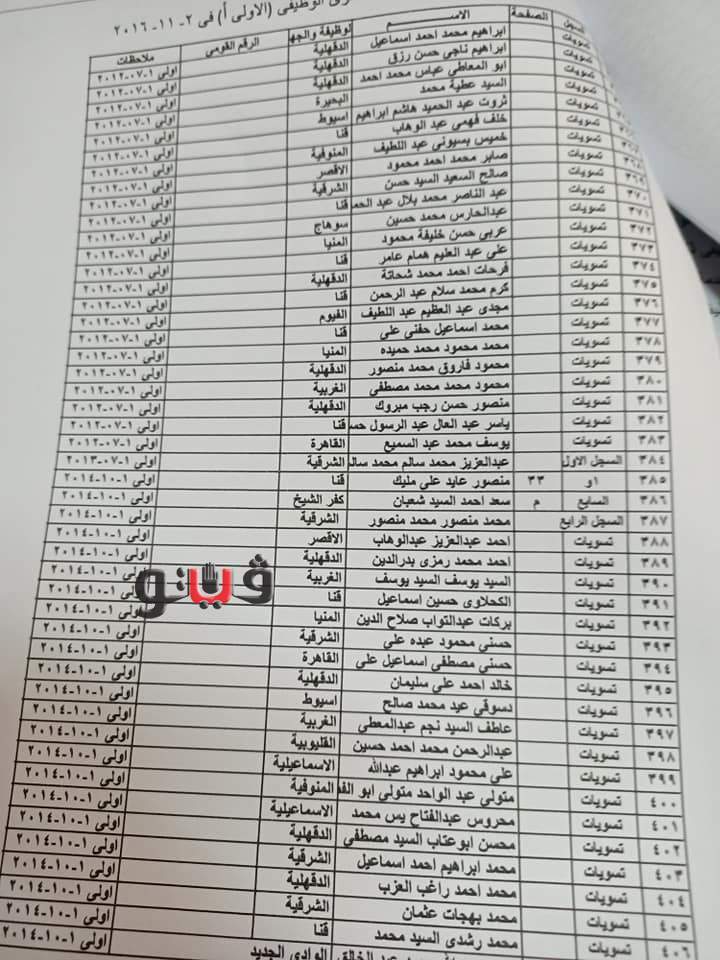 الوظيفى (الاولى أ) فى ٢-١١-٢٠١٦
السجل الصفحة الاســـم الوظيفة والجه الرقم القومى ملاحظات
تسويات ابراهيم محمد احمد اسماعيل الدقهلية اولى ١-٠٧-٢٠١٢
تسويات ابراهيم ناجى حسن رزق الدقهلية اولى ١-٠٧-٢٠١٢
تسويات ابو المعاطى عباس محمد احمد الدقهلية اولى ١-٠٧-٢٠١٢
تسويات السيد عطية محمد البحيرة اولى ١-٠٧-٢٠١٢
تسويات ثروت عبد الحميد هاشم ابراهيم اسيوط اولى ١-٠٧-٢٠١٢
تسويات خلف فهمى عبد الوهاب قنا اولى ١-٠٧-٢٠١٢
تسويات خميس بسيونى عبد اللطيف المنوفية اولى ١-٠٧-٢٠١٢
٣٦٨ تسويات صابر محمد احمد محمود الاقصر اولى ١-٠٧-٢٠١٢
٣٦٩ تسويات صالح السعيد السيد حسن الشرقية اولى ١-٠٧-٢٠١٢
٣٧٠ تسويات عبد الناصر محمد بلال عبد الحم قنا اولى ١-٠٧-٢٠١٢
٣٧١ تسويات عبدالحارس محمد حسين سوهاج اولى ١-٠٧-٢٠١٢
٣٧٢ تسويات عربى حسن خليفة محمود المنيا اولى ١-٠٧-٢٠١٢
٣٧٣ تسويات على عبد العليم همام عامر قنا اولى ١-٠٧-٢٠١٢
٣٧٤ تسويات فرحات احمد محمد شحاتة الدقهلية اولى ١-٠٧-٢٠١٢
٣٧٥ تسويات كرم محمد سلام عبد الرحمن قنا اولى ١-٠٧-٢٠١٢
٣٧٦ تسويات مجدى عبد العظيم عبد اللطيف الفيوم اولى ١-٠٧-٢٠١٢
٣٧٧ تسويات محمد اسماعيل حفنى على قنا اولى ١-٠٧-٢٠١٢
٣٧٨ تسويات محمد محمود محمد حميده المنيا اولى ١-٠٧-٢٠١٢
٣٧٩ تسويات محمود فاروق محمد منصور الدقهلية اولى ١-٠٧-٢٠١٢
٣٨٠ تسويات محمود محمد محمد مصطفى الغربية اولى ١-٠٧-٢٠١٢
٣٨١ تسويات منصور حسن رجب مبروك الدقهلية اولى ١-٠٧-٢٠١٢
٣٨٢ تسويات ياسر عبد العال عبد الرسول حس قنا اولى ١-٠٧-٢٠١٢
٣٨٣ تسويات يوسف محمد عبد السميع القاهرة اولى ١-٠٧-٢٠١٢
٣٨٤ السجل الاول عبدالعزيز محمد سالم محمد سالم الشرقية اولى ١-٠٧-٢٠١٣
٣٨٥ او ٣٣ منصور عايد على مليك قنا اولى ١-١٠-٢٠١٤
٣٨٦ السابع م سعد احمد السيد شعبان كفر الشيخ اولى ١-١٠-٢٠١٤
٣٨٧ السجل الرابع محمد منصور محمد منصور الشرقية اولى ١-١٠-٢٠١٤
٣٨٨ تسويات احمد عبدالعزيز عبدالوهاب الاقصر اولى ١-١٠-٢٠١٤
٣٨٩ تسويات احمد محمد رمزى بدرالدين الدقهلية اولى ١-١٠-٢٠١٤
٣٩٠ تسويات السيد يوسف السيد يوسف الغربية ڤيتو اولى ١-١٠-٢٠١٤
٣٩١ تسويات الكحلاوى حسين اسماعيل قنا اولى ١-١٠-٢٠١٤
٣٩٢ تسويات بركات عبدالتواب صلاح الدين المنيا اولى ١-١٠-٢٠١٤
٣٩٣ تسويات حسنى محمود عبده على الشرقية اولى ١-١٠-٢٠١٤
٣٩٤ تسويات حسنى مصطفى اسماعيل على القاهرة اولى ١-١٠-٢٠١٤
٣٩٥ تسويات خالد احمد على سليمان الدقهلية اولى ١-١٠-٢٠١٤
٣٩٦ تسويات دسوقى عيد محمد صالح اسيوط اولى ١-١٠-٢٠١٤
٣٩٧ تسويات عاطف السيد نجم عبدالمعطى الغربية اولى ١-١٠-٢٠١٤
٣٩٨ تسويات عبدالرحمن محمد احمد حسين القليوبية اولى ١-١٠-٢٠١٤
٣٩٩ تسويات على محمود ابراهيم عبدالله الاسماعيلية اولى ١-١٠-٢٠١٤
٤٠٠ تسويات متولى عبد الواحد متولى ابو الفض المنوفية اولى ١-١٠-٢٠١٤
٤٠١ تسويات محروس عبدالفتاح يس محمد الاسماعيلية اولى ١-١٠-٢٠١٤
٤٠٢ تسويات محسن ابوعتاب السيد مصطفى الدقهلية اولى ١-١٠-٢٠١٤
٤٠٣ تسويات محمد ابراهيم احمد اسماعيل الشرقية اولى ١-١٠-٢٠١٤
٤٠٤ تسويات محمد احمد راغب العزب الدقهلية اولى ١-١٠-٢٠١٤
٤٠٥ تسويات محمد بهجات عثمان الشرقية اولى ١-١٠-٢٠١٤
٤٠٦ تسويات محمد رشدى السيد محمد قنا اولى ١-١٠-٢٠١٤
عبد الخالق الوادى الجديد